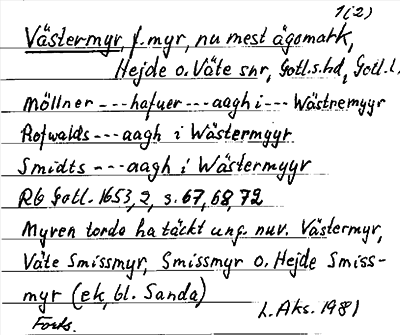 1(2)
Västermyr, f. myr, nu mest ägomark,
Hejde o. Väte snr, Gotl.s.hd, Gotl.l.
Möllner --- hafuer --- aagh i --- Wästremyyr
Rofwalds --- aagh i Wästermyyr
Smidts --- aagh i Wästermyyr
Rb Gotl. 1653, 2, s. 67, 68, 72
Myren torde ha täckt ung. nuv. Västermyr,
Väte Smissmyr, Smissmyr o. Hejde Smiss-
myr (ek. bl. Sanda)
Forts. L. Aks. 1981